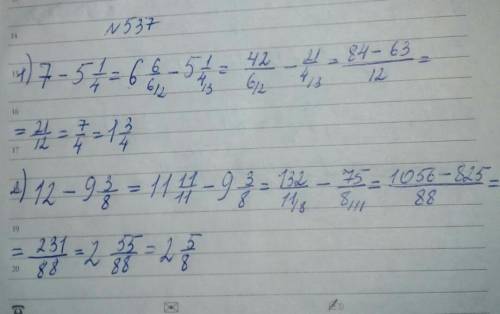 14
№537
15
1) 7 - 5 1/4 = 6 6/6/2 - 5 1/4/3 = 42/6/2 - 21/4/3 = 84-63/12 =
16
= 21/12 = 7/4 = 1 3/4
17
2) 12 - 9 3/8 = 11 11/11 - 9 3/8 = 132/11/8 - 75/8/11 = 1056-825/88 =
19
= 231/88 = 2 55/88 = 2 5/8
20